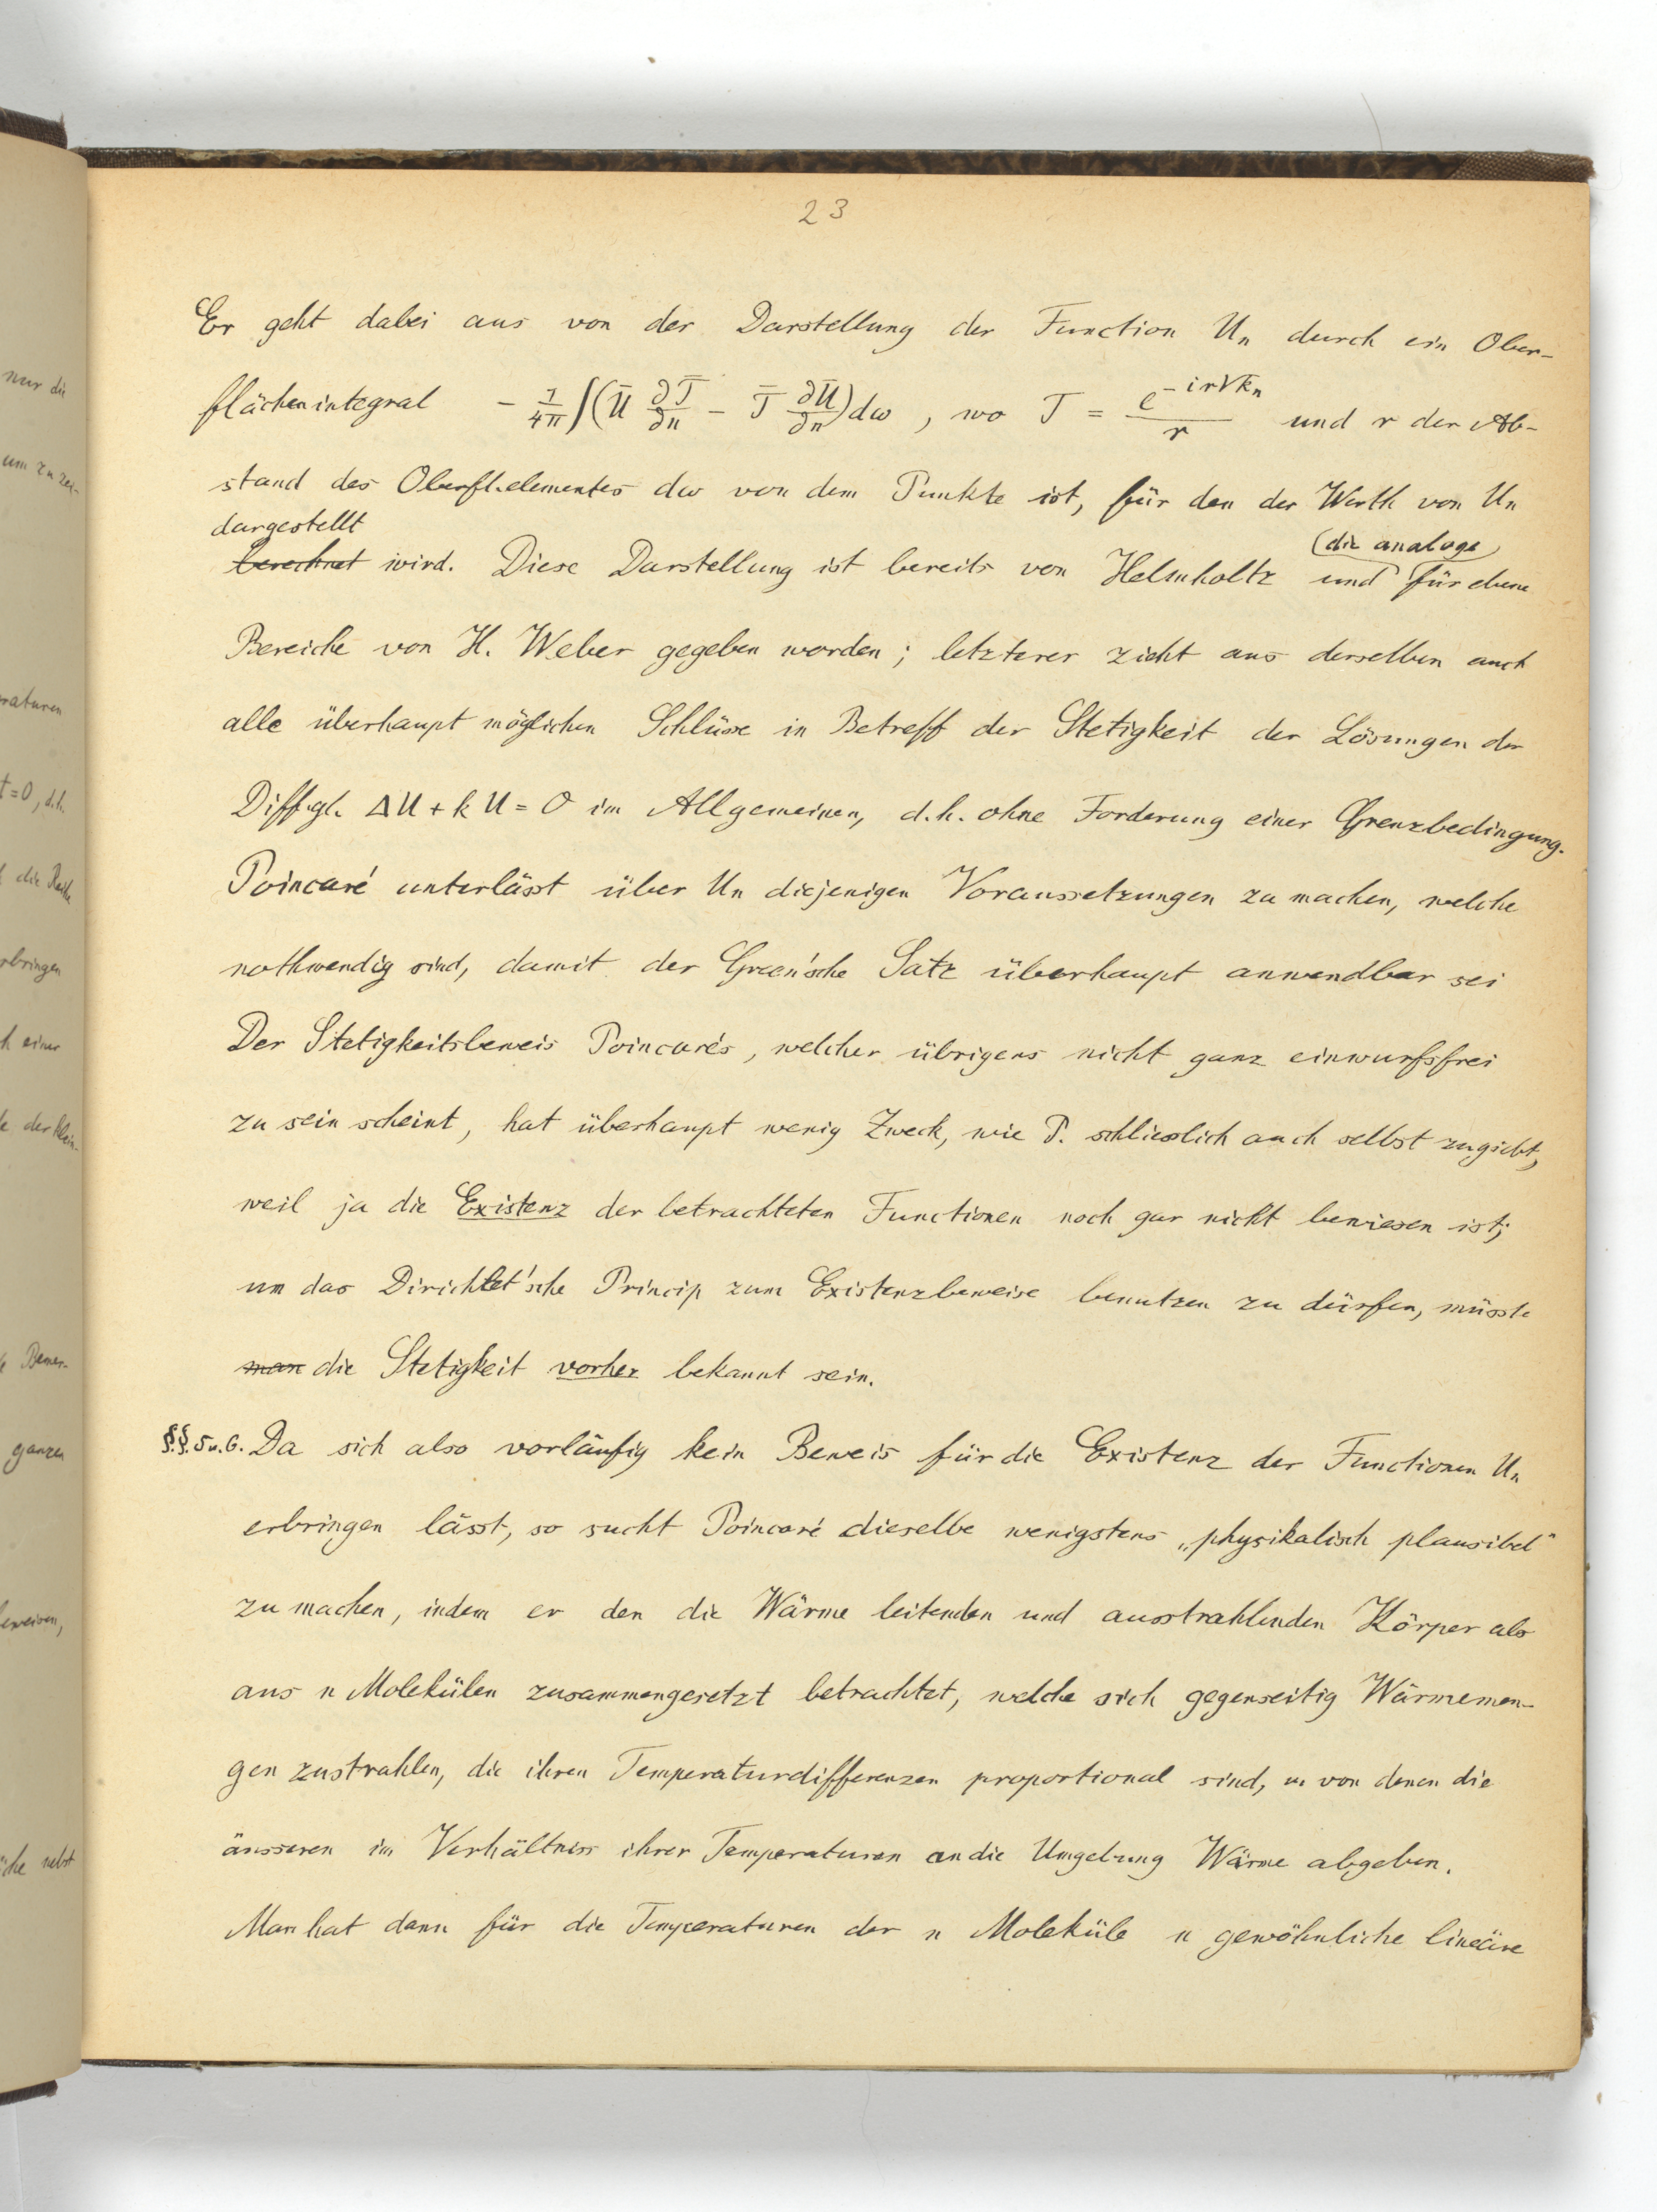 23
Er geht dabei aus von der Darstellung der Function Un durch ein Ober-
flächenintegral − 1/4π ∫(Ū ∂T̄/∂n − T̄ ∂Ū/∂n) dω , wo T = e^(−ir√kn)/r und r der Ab-
stand des Oberfl.elementes dω von dem Punkte ist, für den der Werth von Un
dargestellt
berechnet wird. Diese Darstellung ist bereits von Helmholtz und (die analoge) für ebene
Bereiche von H. Weber gegeben worden; letzterer zieht aus derselben auch
alle überhaupt möglichen Schlüsse in Betreff der Stetigkeit der Lösungen der
Diff.gl. ΔU + k U = 0 im Allgemeinen, d.h. ohne Forderung einer Grenzbedingung.
Poincaré unterlässt über Un diejenigen Voraussetzungen zu machen, welche
nothwendig sind, damit der Green'sche Satz überhaupt anwendbar sei
Der Stetigkeitsbeweis Poincaré's, welcher übrigens nicht ganz einwurfsfrei
zu sein scheint, hat überhaupt wenig Zweck, wie P. schliesslich auch selbst zugiebt,
weil ja die Existenz der betrachteten Functionen noch gar nicht bewiesen ist;
um das Dirichlet'sche Princip zum Existenzbeweise benutzen zu dürfen, müsste
man die Stetigkeit vorher bekannt sein.
§.§. 5 u. 6. Da sich also vorläufig kein Beweis für die Existenz der Functionen Un
erbringen lässt, so sucht Poincaré dieselbe wenigstens „physikalisch plausibel"
zu machen, indem er den die Wärme leitenden und ausstrahlenden Körper als
aus n Molekülen zusammengesetzt betrachtet, welche sich gegenseitig Wärmemen-
gen zustrahlen, die ihren Temperaturdifferenzen proportional sind, u. von denen die
äusseren im Verhältniss ihrer Temperaturen an die Umgebung Wärme abgeben.
Man hat dann für die Temperaturen der n Moleküle n gewöhnliche lineäre
nur die
um zu zei-
raturen
t=0, d.h.
die Reihe
rbringen
h einer
der klein-
Bemer-
ganzen
beweisen,
che nebst